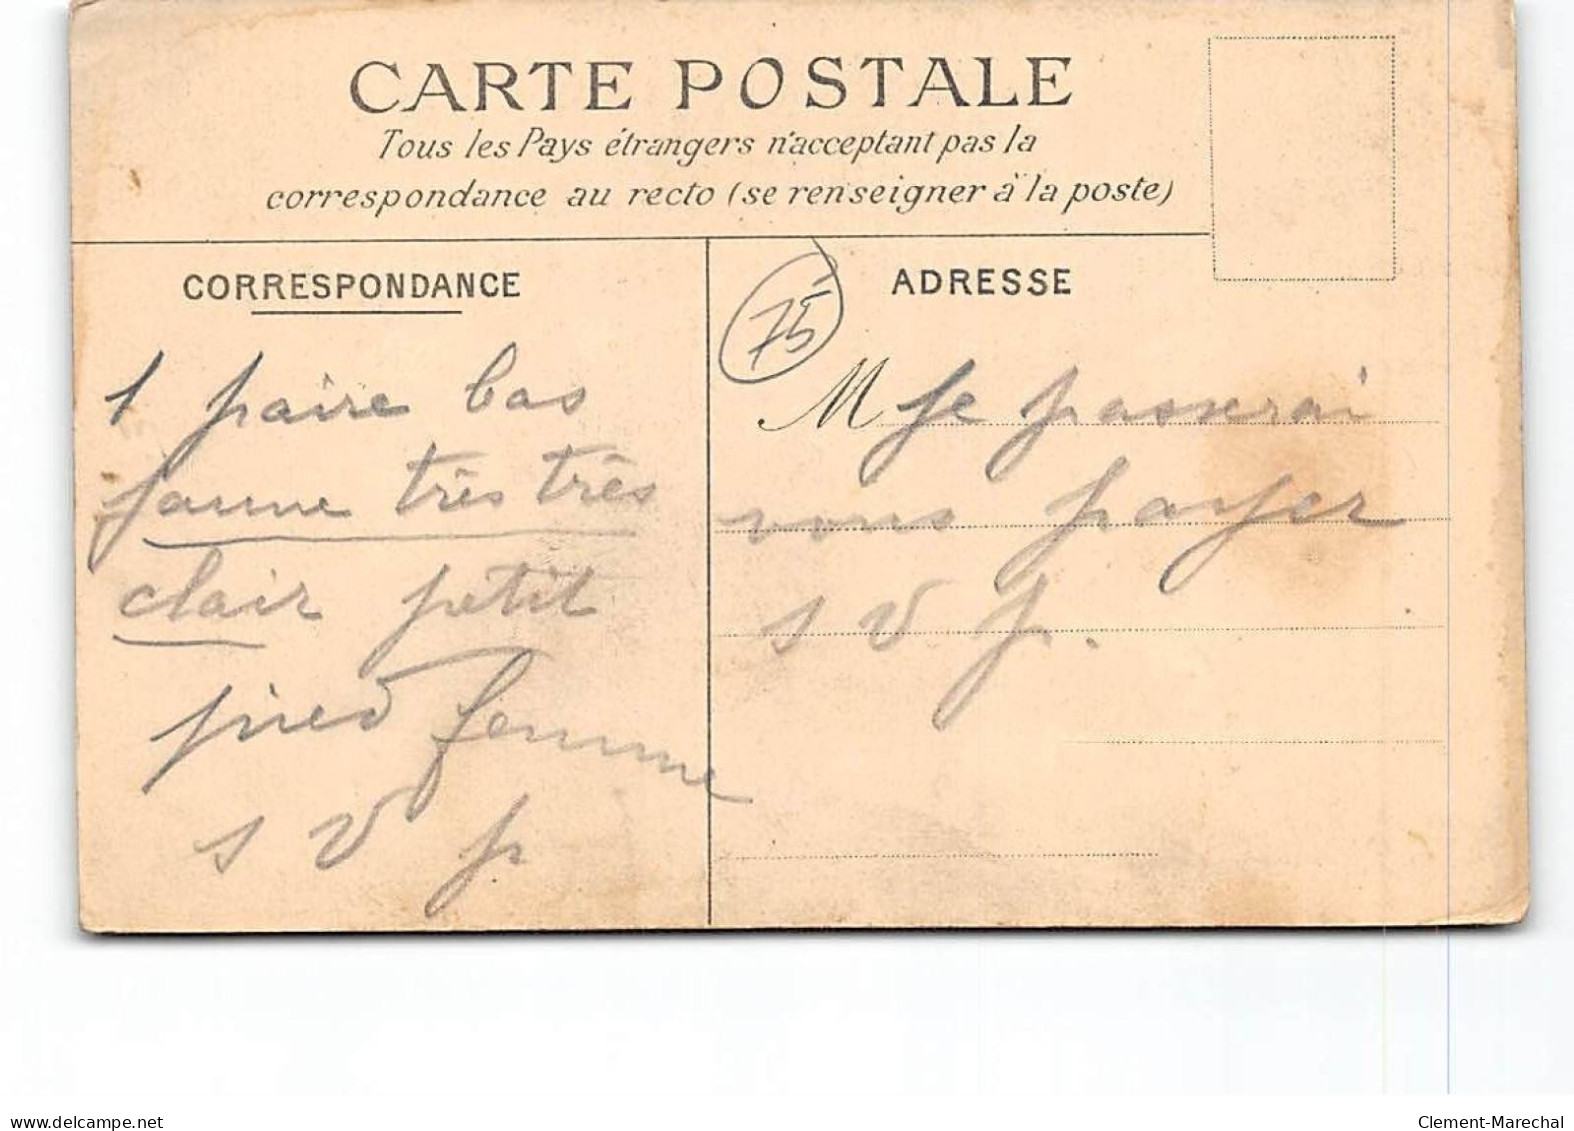 CARTE POSTALE
Tous les Pays étrangers n'acceptant pas la
correspondance au recto (se renseigner à la poste)
CORRESPONDANCE
1 paire bas
jaune très très
clair petit
pied femme
s v p
75
ADRESSE
M Je passerai
vous payer
s v p.
www.delcampe.net
Clement-Marechal